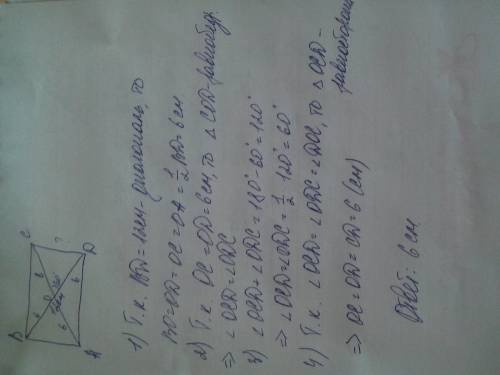 B C
6 6
O 60° ?
6 6
A D
1) Т.к. BD=12см - диагональ, то
BO=OD=OC=OA=1/2 BD=6см
2) Т.к. OC=OD=6см, то △ COD-равнобедр.
⇒ ∠OCD=∠ODC
3) ∠OCD=∠ODC=180°-60°=120°
⇒ ∠OCD=∠ODC=1/2 120°=60°
4) Т.к. ∠OCD=∠ODC=∠DOC, то △ OCD-
равносторонн
⇒ OC=OD=CD=6 (см)
Ответ: 6 см